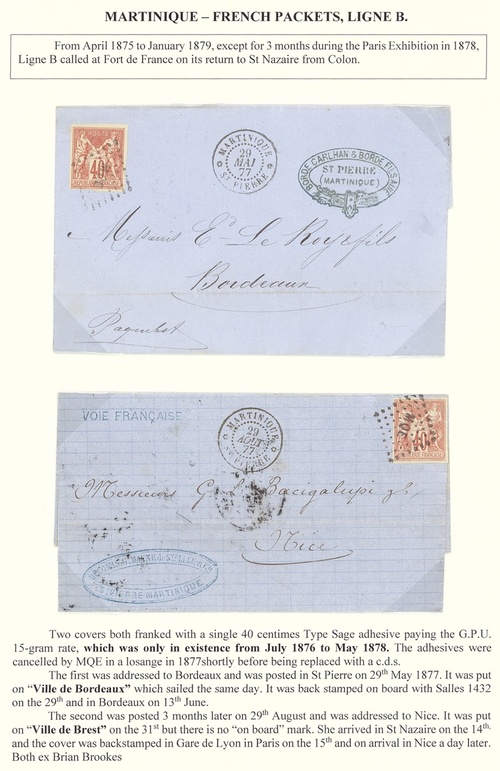 MARTINIQUE – FRENCH PACKETS, LIGNE B.
From April 1875 to January 1879, except for 3 months during the Paris Exhibition in 1878,
Ligne B called at Fort de France on its return to St Nazaire from Colon.
POSTE
40
MARTINIQUE
29
MAI
77
ST PIERRE
BORDE CARLHAN & BORDE FILS AINE
ST PIERRE
(MARTINIQUE)
Messieurs Ed Le Roy & fils
Bordeaux
Paquebot
VOIE FRANÇAISE
MARTINIQUE
29
AOUT
77
ST PIERRE
MQE
40
Messieurs G. L. Bacigalupi
Nice
ST PIERRE MARTINIQUE
Two covers both franked with a single 40 centimes Type Sage adhesive paying the G.P.U.
15-gram rate, which was only in existence from July 1876 to May 1878. The adhesives were
cancelled by MQE in a losange in 1877shortly before being replaced with a c.d.s.
The first was addressed to Bordeaux and was posted in St Pierre on 29th May 1877. It was put
on “Ville de Bordeaux” which sailed the same day. It was back stamped on board with Salles 1432
on the 29th and in Bordeaux on 13th June.
The second was posted 3 months later on 29th August and was addressed to Nice. It was put
on “Ville de Brest” on the 31st but there is no “on board” mark. She arrived in St Nazaire on the 14th,
and the cover was backstamped in Gare de Lyon in Paris on the 15th and on arrival in Nice a day later.
Both ex Brian Brookes